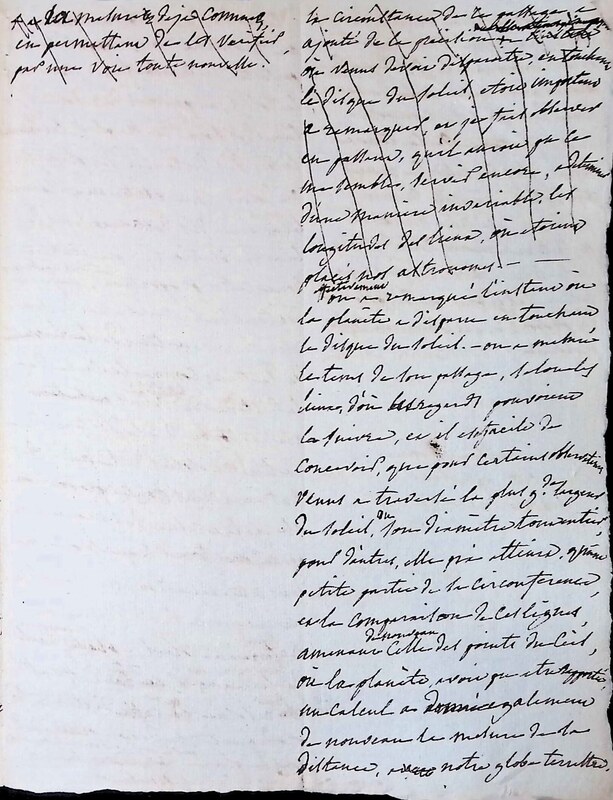 la mesure deja connue
en permettant de les verifier
par une voie toute nouvelle.
la circonstance de ce passage a
ajouté de la précision
où venus devoit disparoitre, en touchant
le disque du soleil etoit important
a remarquer, or je fais observer
en passant, qu'il auroit pu ce
me semble, servir encore, a determiner
d'une maniere invariable, les
longitudes des lieux, où etoient
placés nos astronomes. —
on a remarqué l'instant où
la planète a disparu en touchant
le disque du soleil. — on a mesuré
le tems de son passage, selon les
lieux, d'où les regards pouvoient
la suivre, et il est facile de
concevoir, que pour certains observateurs
venus a traversé la plus gde largeur
du soleil, ou son diamètre tout entier,
pour d'autres, elle n'a atteint, qu'une
petite partie de la circonférence,
et la comparaison de ces lignes,
de nouveau
amenant celle des points du ciel,
où la planète, avoit pu etre
un calcul a donné egalement
de nouveau la mesure de la
distance, notre globe terrestre